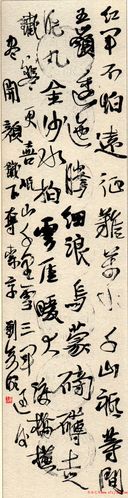 红军不怕远征難萬水千山祇等閒
五嶺逶迤騰細浪烏蒙磅礴走
泥丸金沙水拍雲崖暖大渡橋橫
鐵索寒更喜岷山千里雪三軍過後
盡開顏